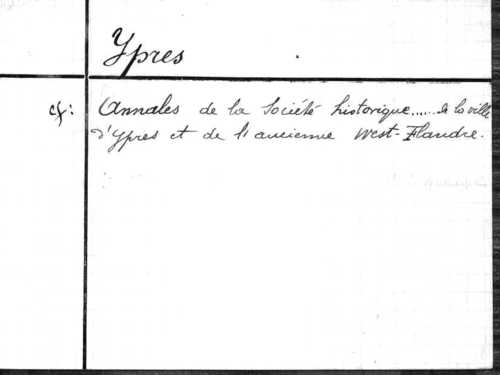 Ypres
cf: Annales de la Société historique...... de la ville
d'Ypres et de l'ancienne West-Flandre.